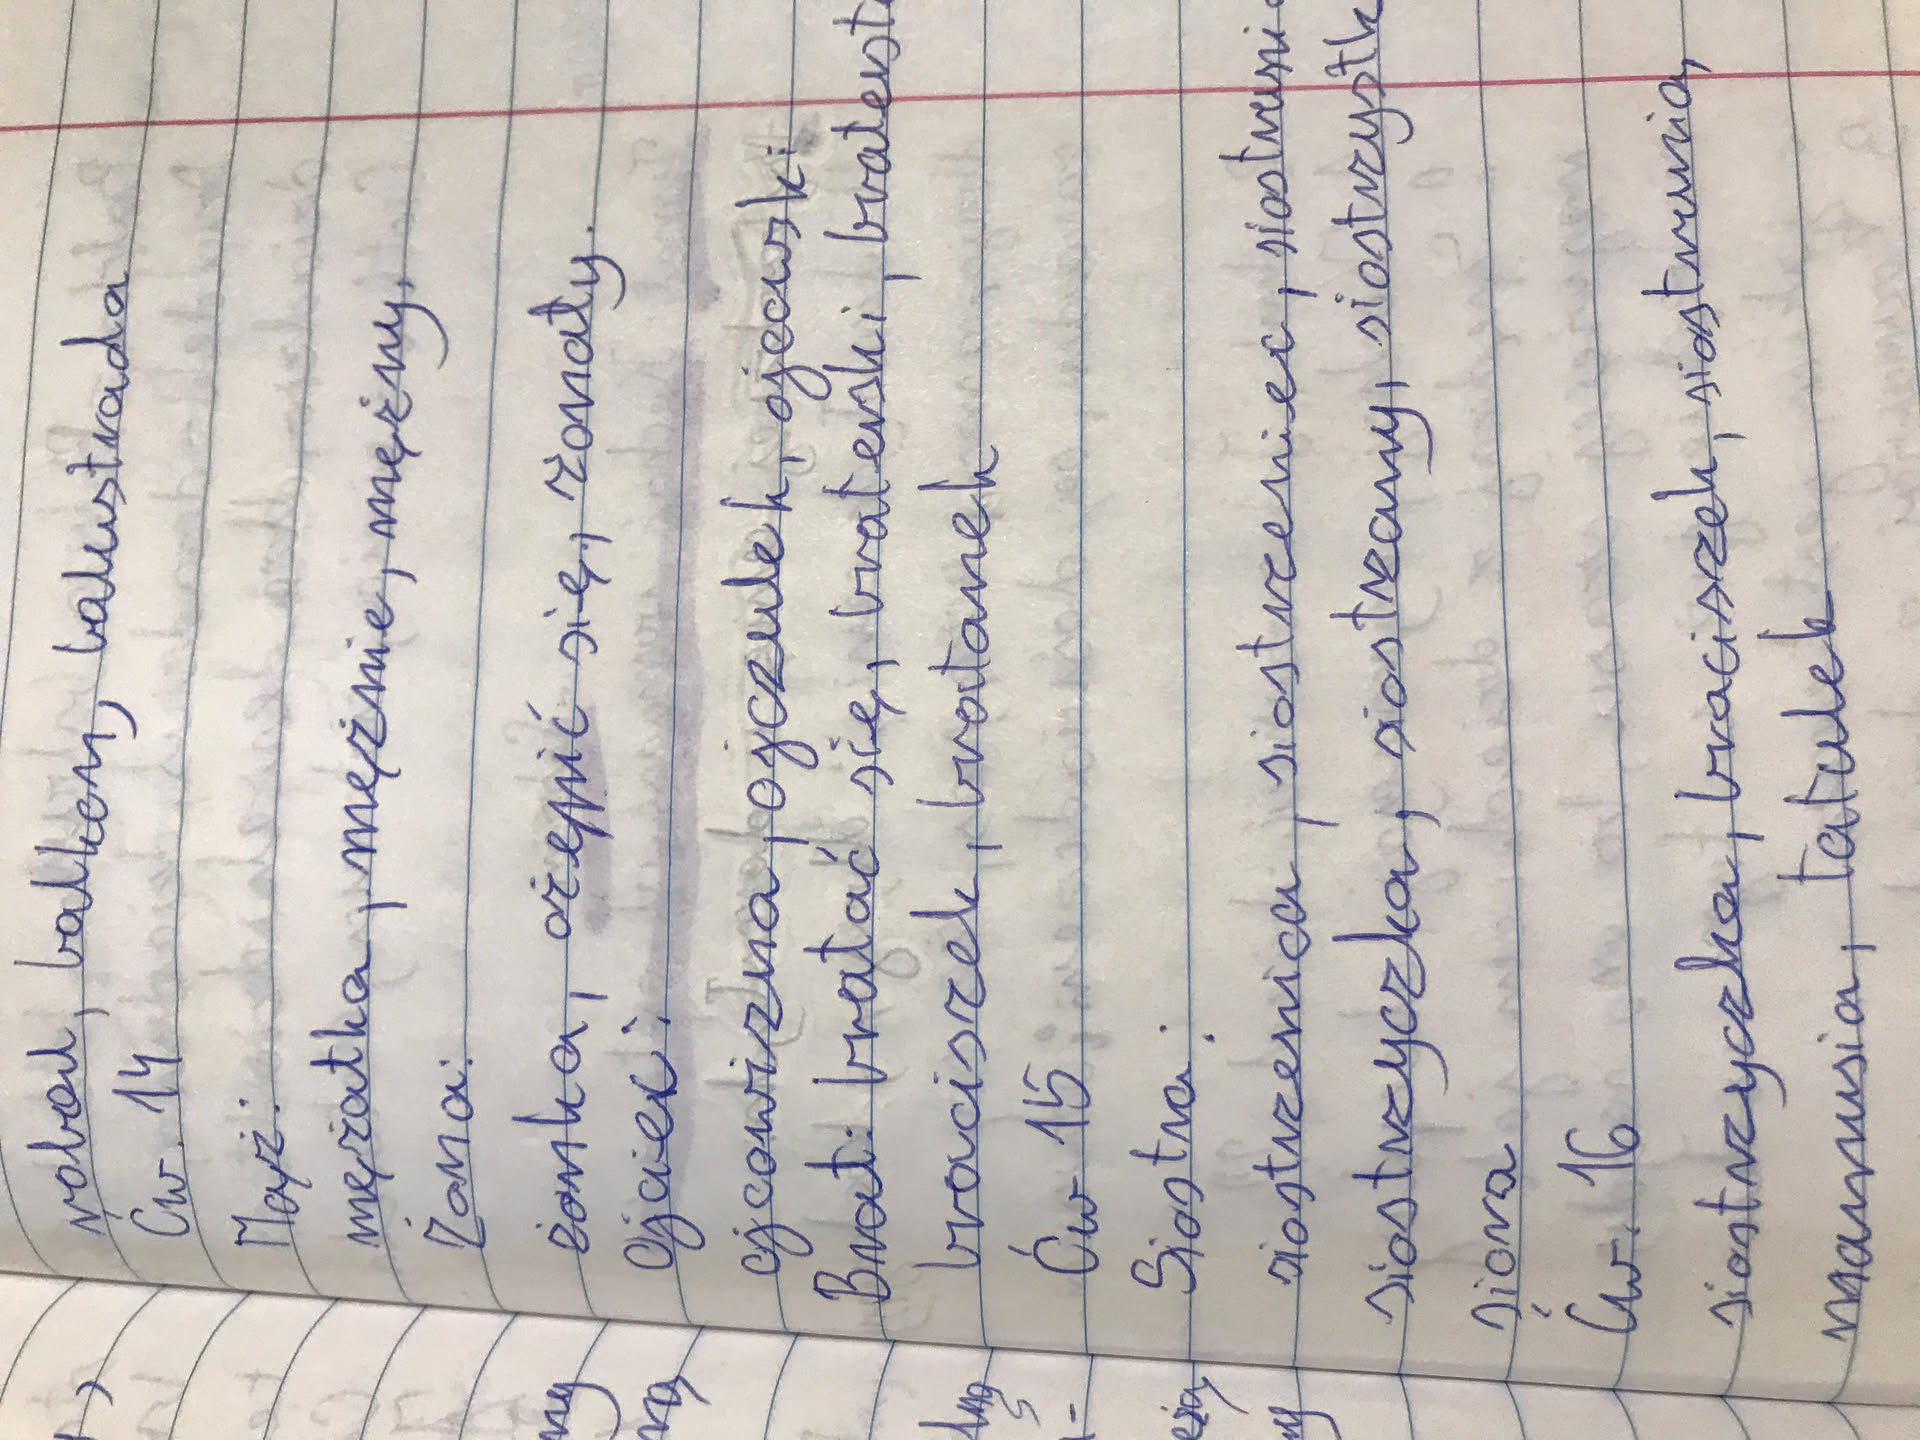 rabat, balkon, balustrada
Ćw. 14
Mąż:
mężatka, mężnie, mężny,
Żona:
żonka, ożenić się, żonaty.
Ojciec:
ojcowizna, ojczulek, ojcowski
Brat: bratać się, braterski, braterst
braciszek, bratanek
Ćw 15
Siostra:
siostrzenica, siostrzeniec, siostruni
siostrzyczka, siostrzany, siostrzystk
siora
Ćw. 16
siostrzyczka, braciszek, siostrunia,
mamusia, tatulek